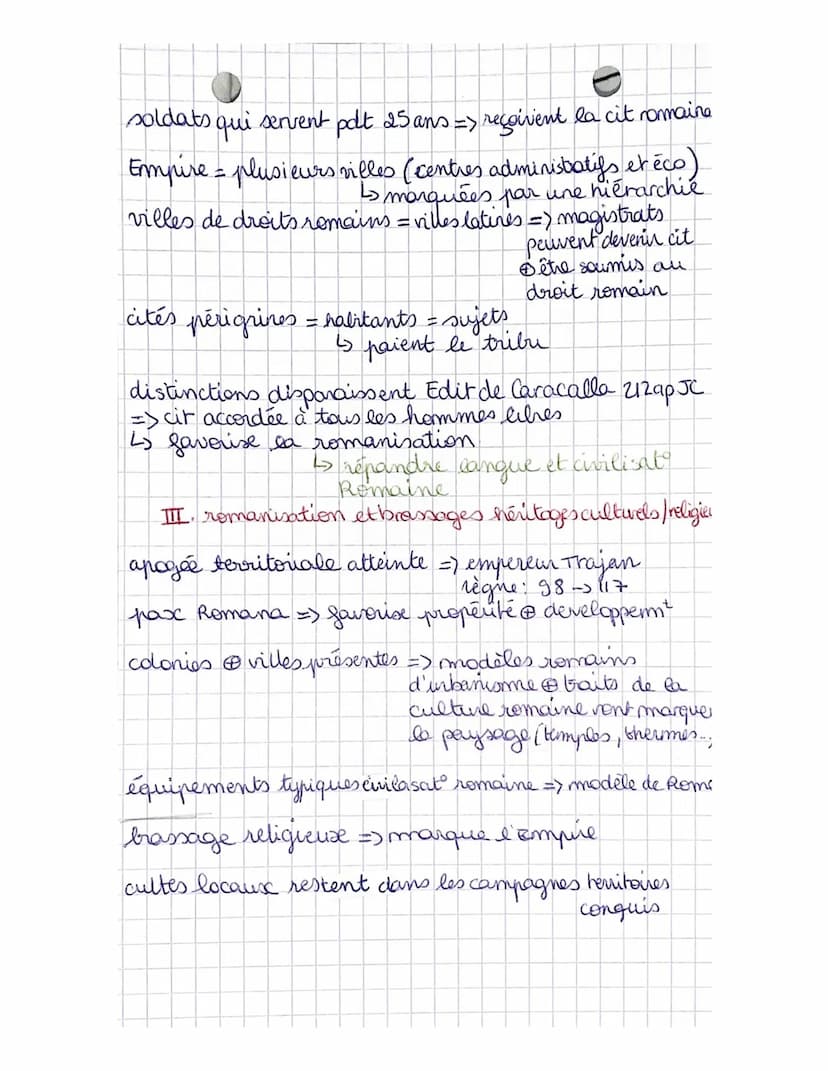 soldats qui servent pdt 25 ans => reçoivent la cit romaine
Empire = plusieurs villes (centres administratifs et éco)
↳ marquées par une hiérarchie
villes de droits romains = villes latines => magistrats
peuvent devenir cit
⊕ être soumis au
droit romain
cités périgrines = habitants = sujets
↳ paient le tribu
distinctions disparaissent Edit de Caracalla 212 ap JC
=> cit accordée à tous les hommes libres
↳ favorise la romanisation
↳ répandre langue et civilisat°
Romaine
III. romanisation et brassages héritages culturels/religie
apogée territoriale atteinte => empereur Trajan
règne : 98 -> 117
pax Romana => favorise propérité ⊕ developpemt
colonies ⊕ villes présentes => modèles romains
d'urbanisme ⊕ traits de la
culture romaine vont marque
le paysage (temples, thermes...
équipements typiques civilasat° romaine => modèle de Rome
brassage religieuse => marque l'empire
cultes locaux restent dans les campagnes territoires
conquis